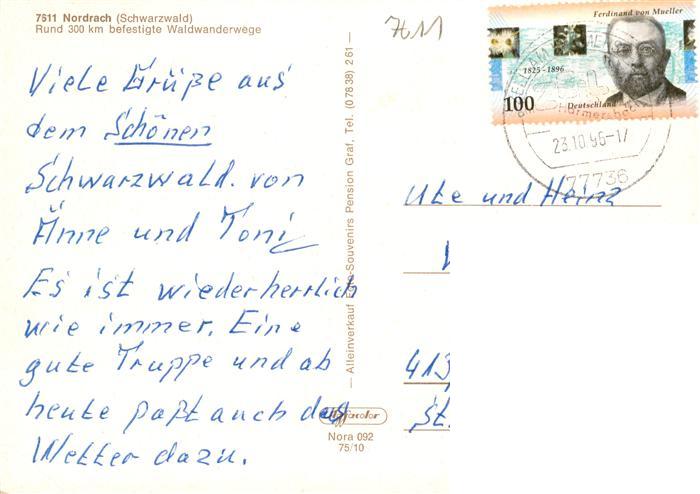 7611 Nordrach (Schwarzwald)
Rund 300 km befestigte Waldwanderwege
Viele Grüße aus
dem Schönen
Schwarzwald. von
Änne und Toni
Es ist wiederherrlich
wie immer. Eine
gute Truppe und ab
heute paßt auch das
Wetter dazu.
— Alleinverkauf Edle-Souvenirs Pension Graf, Tel. (0 78 38) 2 61 —
Nora 092
75/10
7611
Ferdinand von Mueller
1825-1896
100
Deutschland
23.10.96-17
77736
Ute und Heinz
413
St.